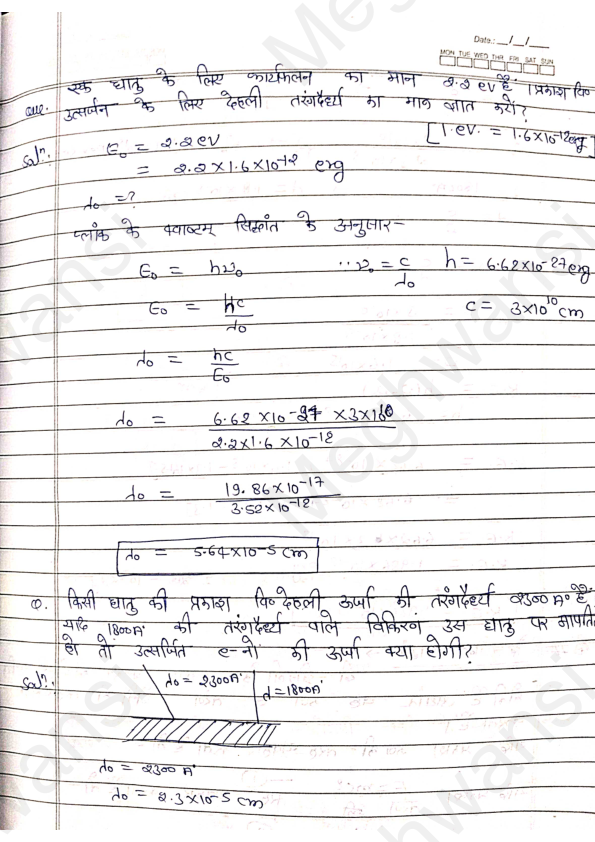 Date.: __/__/__
MON TUE WED THR FRI SAT SUN
एक धातु के लिए कार्यफलन का मान 2.2 eV है। प्रकाश वि०
Que. उत्सर्जन के लिए देहली तरंगदैर्ध्य का मान ज्ञात करो?
[1 ev. = 1.6×10-12 erg]
Solⁿ. E₀ = 2.2ev
= 2.2×1.6×10-12 erg
λ₀ = ?
प्लांक के क्वाण्टम् सिद्धांत के अनुसार-
E₀ = hν₀ ∵ν₀ = c/λ₀ h = 6.62×10-27 erg
E₀ = hc/λ₀ c = 3×10¹⁰ cm
λ₀ = hc/E₀
λ₀ = 6.62×10-27 ×3×10
2.2×1.6×10-12
λ₀ = 19.86×10-17
3.52×10-12
λ₀ = 5.64×10-5 cm
Q. किसी धातु की प्रकाश वि० देहली ऊर्जा की तरंगदैर्ध्य 2300A° है
यदि 1800A° की तरंगदैर्ध्य वाले विकिरण उस धातु पर
हो तो उत्सर्जित e-नो की ऊर्जा क्या होगी?
Solⁿ. λ₀ = 2300A° λ=1800A°
λ₀ = 2300 A°
λ₀ = 2.3×10-5 cm
Meghwansi